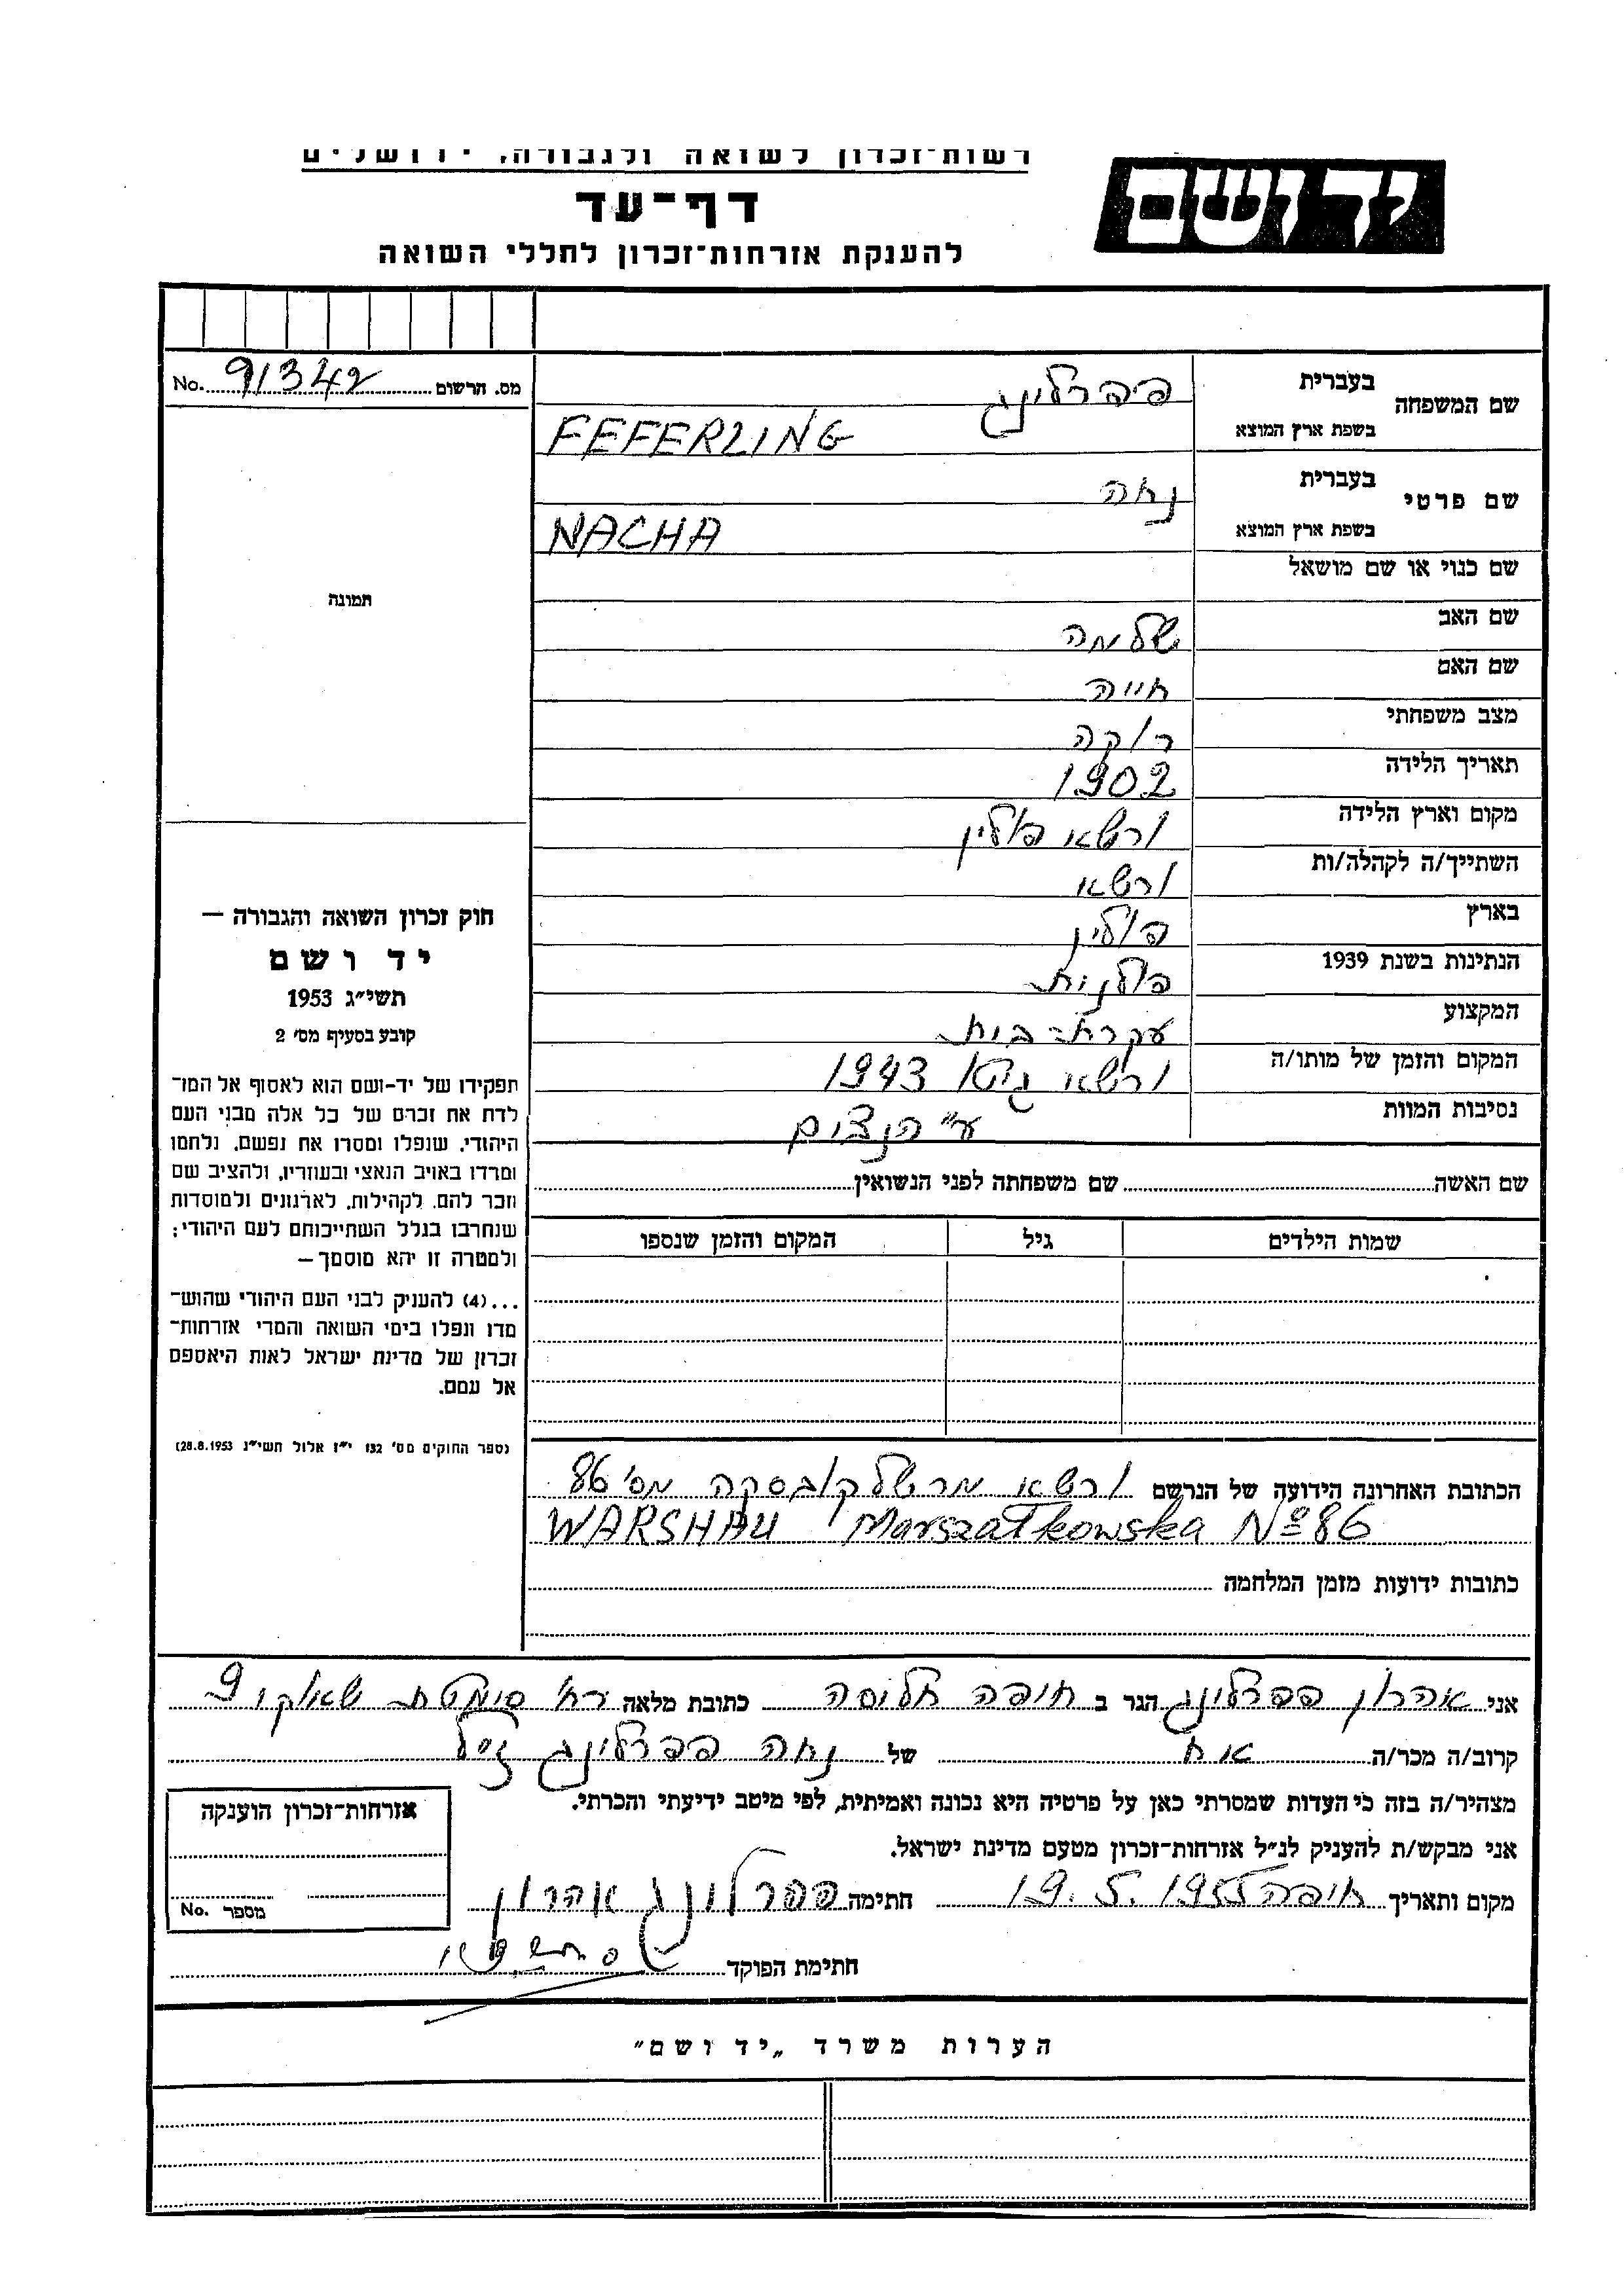 רשות־זכרון לשואה ולגבורה, ירושלים
יד ושם
דף־עד
להענקת אזרחות־זכרון לחללי השואה
מס. הרשום 91342 No.
שם המשפחה בעברית פפרלינג
בשפת ארץ המוצא FEFERLING
שם פרטי בעברית נחה
בשפת ארץ המוצא NACHA
שם כנוי או שם מושאל
שם האב שלמה
שם האם חייה
מצב משפחתי רוקה
תאריך הלידה 1902
מקום וארץ הלידה ורשא פולין
השתייך/ה לקהלה/ות ורשא
בארץ פולין
הנתינות בשנת 1939 פולנית
המקצוע עקרת־בית
המקום והזמן של מותו/ה ורשא גיטו 1943
נסיבות המוות ע״י הנצים
תמונה
חוק זכרון השואה והגבורה —
יד ושם
תשי״ג 1953
קובע בסעיף מס׳ 2
תפקידו של יד-ושם הוא לאסוף אל המו־
לדת את זכרם של כל אלה מבני העם
היהודי, שנפלו ומסרו את נפשם, נלחמו
ומרדו באויב הנאצי ובעוזריו, ולהציב שם
וזכר להם, לקהילות, לארגונים ולמוסדות
שנחרבו בגלל השתייכותם לעם היהודי;
ולמטרה זו יהא מוסמך—
...(4) להעניק לבני העם היהודי שהוש־
מדו ונפלו בימי השואה והמרי אזרחות־
זכרון של מדינת ישראל לאות היאספם
אל עמם.
(ספר החוקים מס׳ 132 י״ז אלול תשי״ג 28.8.1953)
שם האשה שם משפחתה לפני הנשואין
שמות הילדים גיל המקום והזמן שנספו
הכתובת האחרונה הידועה של הנרשם ורשא מרשלקובסקה מס׳ 86
WARSHAU Marszałkowska Nº 86
כתובות ידועות מזמן המלחמה
אני אהרון פפרלינג הגר ב חיפה חליסה כתובת מלאה רח׳ סימטת 9
קרוב/ה מכר/ה אח של נחה פפרלינג ז״ל
מצהיר/ה בזה כי העדות שמסרתי כאן על פרטיה היא נכונה ואמיתית, לפי מיטב ידיעתי והכרתי.
אני מבקש/ת להעניק לנ״ל אזרחות־זכרון מטעם מדינת ישראל.
מקום ותאריך חיפה 19.5.1955 חתימה פפרלינג אהרון
חתימת הפוקד
אזרחות־זכרון הוענקה
מספר No.
הערות משרד „יד ושם״